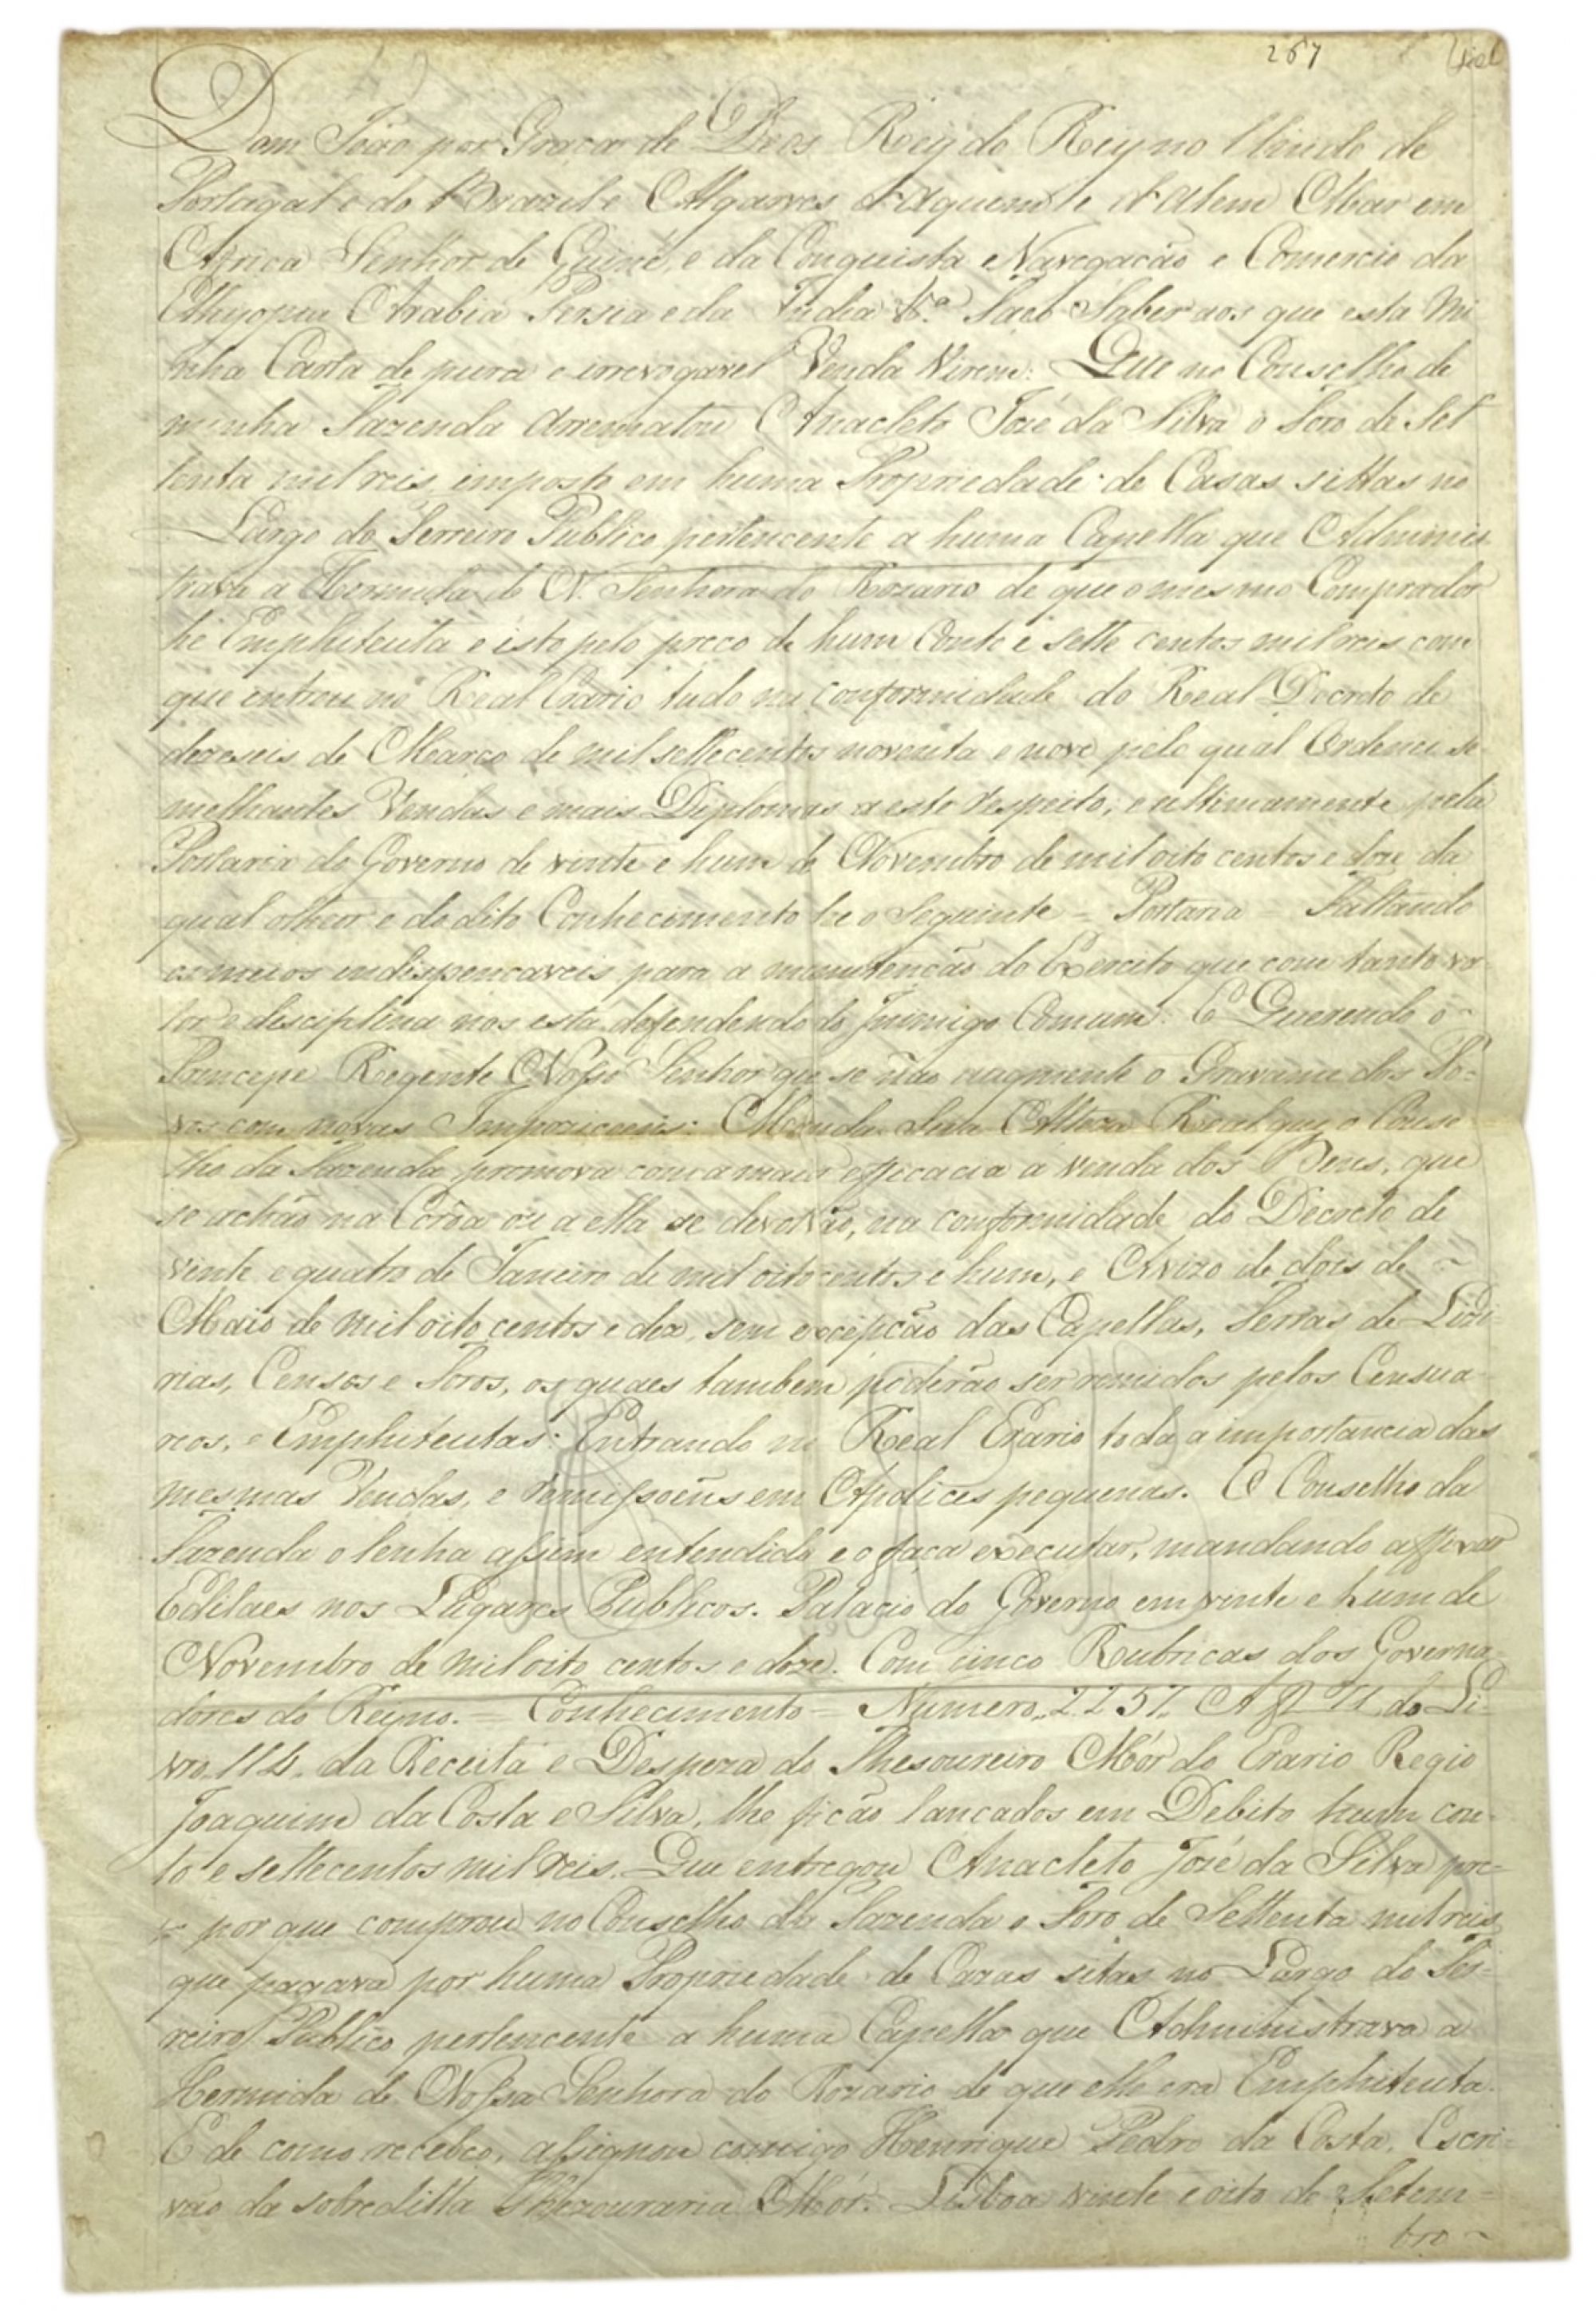 267
Dom João por Graça de Deos Rey do Reyno Unido de
Portugal e do Brazil e Algarves d'Aquem e d'Alem Mar em
Africa Senhor de Guiné, e da Conquista Navegação e Comercio da
Ethyopia Arabia Persia e da India &ª Faço Saber aos que esta Mi
nha Carta de pura e irrevogavel Venda Virem: Que no Conselho de
minha Fazenda Arrematou Anacleto José da Silva o Foro de Set
tenta mil reis imposto em huma Propriedade de Casas sittas no
Largo do Terreiro Publico pertencente a huma Capella que Adminis
trava a Hermida de N. Senhora do Rozario de que o mesmo Comprador
he Emphiteuta e isto pelo preço de hum Conto e sette centos mil reis com
que entrou no Real Erario tudo na conformidade do Real Decreto de
dezeseis de Março de mil settecentos noventa e nove pelo qual Ordenei se
melhantes Vendas e mais Diplomas a este respeito, e ultimamente pela
Portaria do Governo de vinte e hum de Novembro de mil oito centos e doze da
qual o theor e do dito Conhecimento he o Seguinte = Portaria = Faltando
os meios indispencaveis para a manutenção do Exercito que com tanto va
lor e disciplina nos esta defendendo do Inimigo Comum. E Querendo o
Principe Regente Nosso Senhor que se não augmente o Gravame dos Po-
vos com novas Impoziçoens: Manda Sua Alteza Real que o Conse
lho da Fazenda promova com a maior efficacia a venda dos Bens, que
se achão na Corôa ou a ella se devolvão, na conformidade do Decreto de
vinte e quatro de Janeiro de mil oito centos e hum, e Avizo de dois de
Maio de mil oito centos e dez, sem excepção das Capellas, Terras de Lizi-
rias, Censos e Foros, os quaes tambem poderão ser remidos pelos Censua
rios, e Emphiteutas: Entrando no Real Erario toda a importancia das
mesmas Vendas, e remissoens em Apolices pequenas. O Conselho da
Fazenda o tenha assim entendido e o faça executar, mandando affixar
Editaes nos Lugares Publicos. Palacio do Governo em vinte e hum de
Novembro de mil oito centos e doze. Com cinco Rubricas dos Governa-
dores do Reyno. = Conhecimento = Numero 2257. A f do Li-
vro 114. da Receita e Despeza do Thesoureiro Mór do Erario Regio
Joaquim da Costa e Silva, lhe ficão lançados em Debito hum con-
to e settecentos mil reis. Que entregou Anacleto José da Silva pre-
ço por que comprou no Conselho da Fazenda o Foro de Settenta mil reis
que pagava por huma Propriedade de Cazas sitas no Largo do Ter-
reiro Publico pertencente a huma Capella que Administrava a
Hermida de Nossa Senhora do Rozario de que elle era Emphiteuta.
E de como recebeo, assignou comigo Henrique Pedro da Costa, Escri-
vão da sobreditta Thezouraria Mór. Lisboa vinte e oito de Setem-
bro